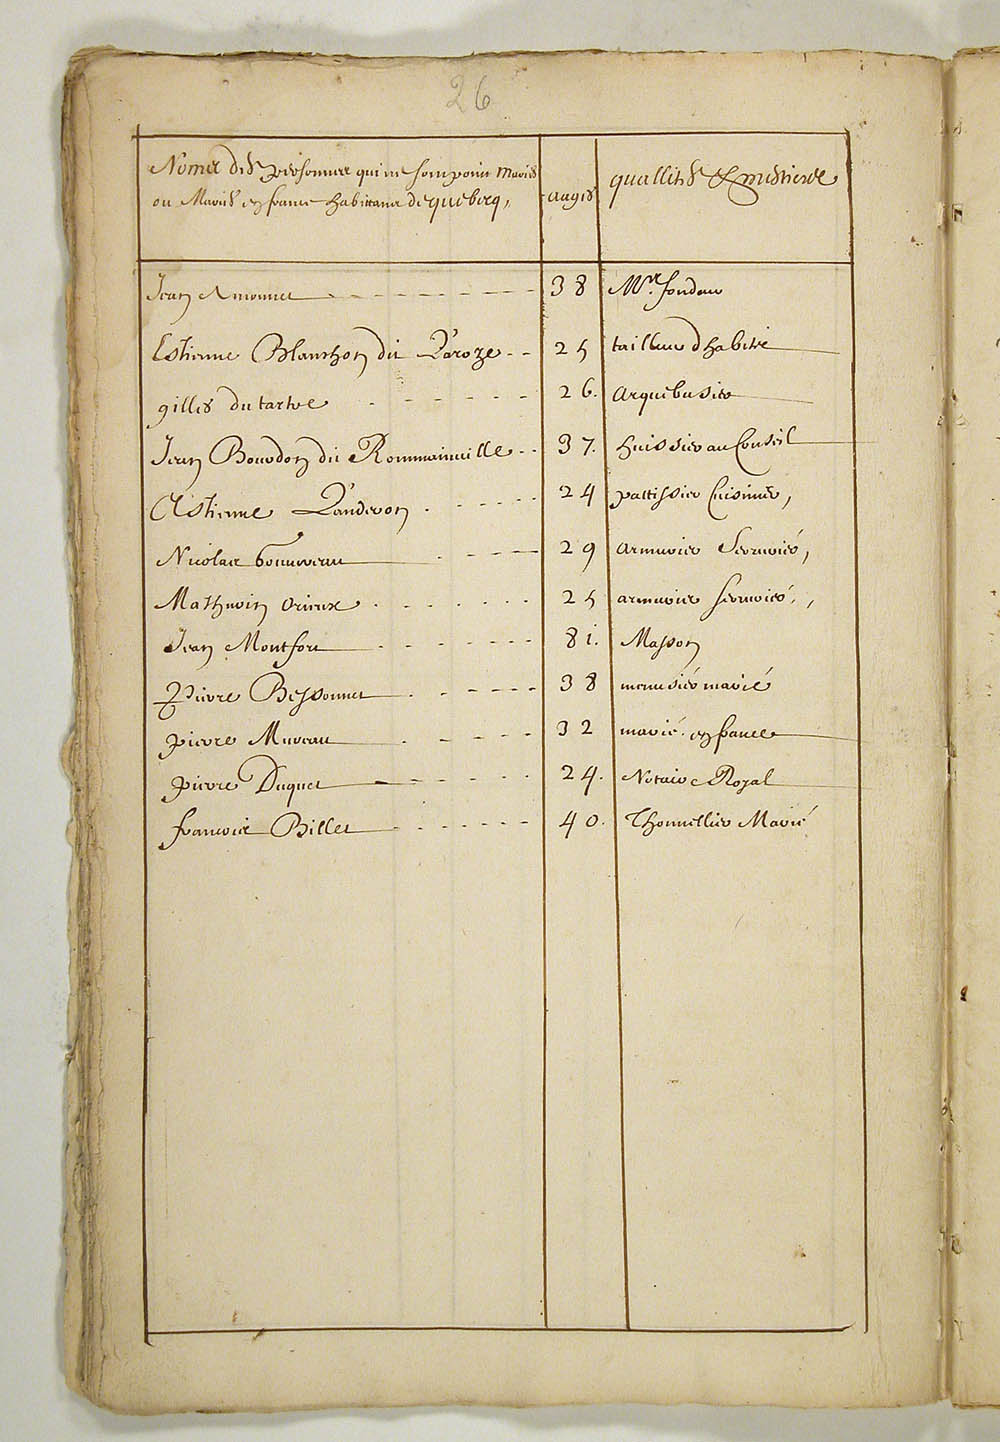 26
Noms des personnes qui ne sont point Mariés aages quallités & mestiers
ou Mariés en france habittans de quebecq,
Jean 38 Mre. fondeur
Estienne Blanchon dit Laroze 25 tailleur dhabits
gilles dutartre 26. arquebusier
Jean Bourdon dit Rommainville 37. huissier au Conseil
Estienne Landeron 24 pattissier Cuisinier,
Nicolas 29 armurier Serrurier,
Mathurin Orieux 25 armurier serrurier,
Jean Montfort 81. Masson
Pierre Bessonnet 38 menusier marié
pierre Mureau 32 marié en france
pierre Duquet 24. Notaire Royal
francois Billet 40. Thonnellier Marié